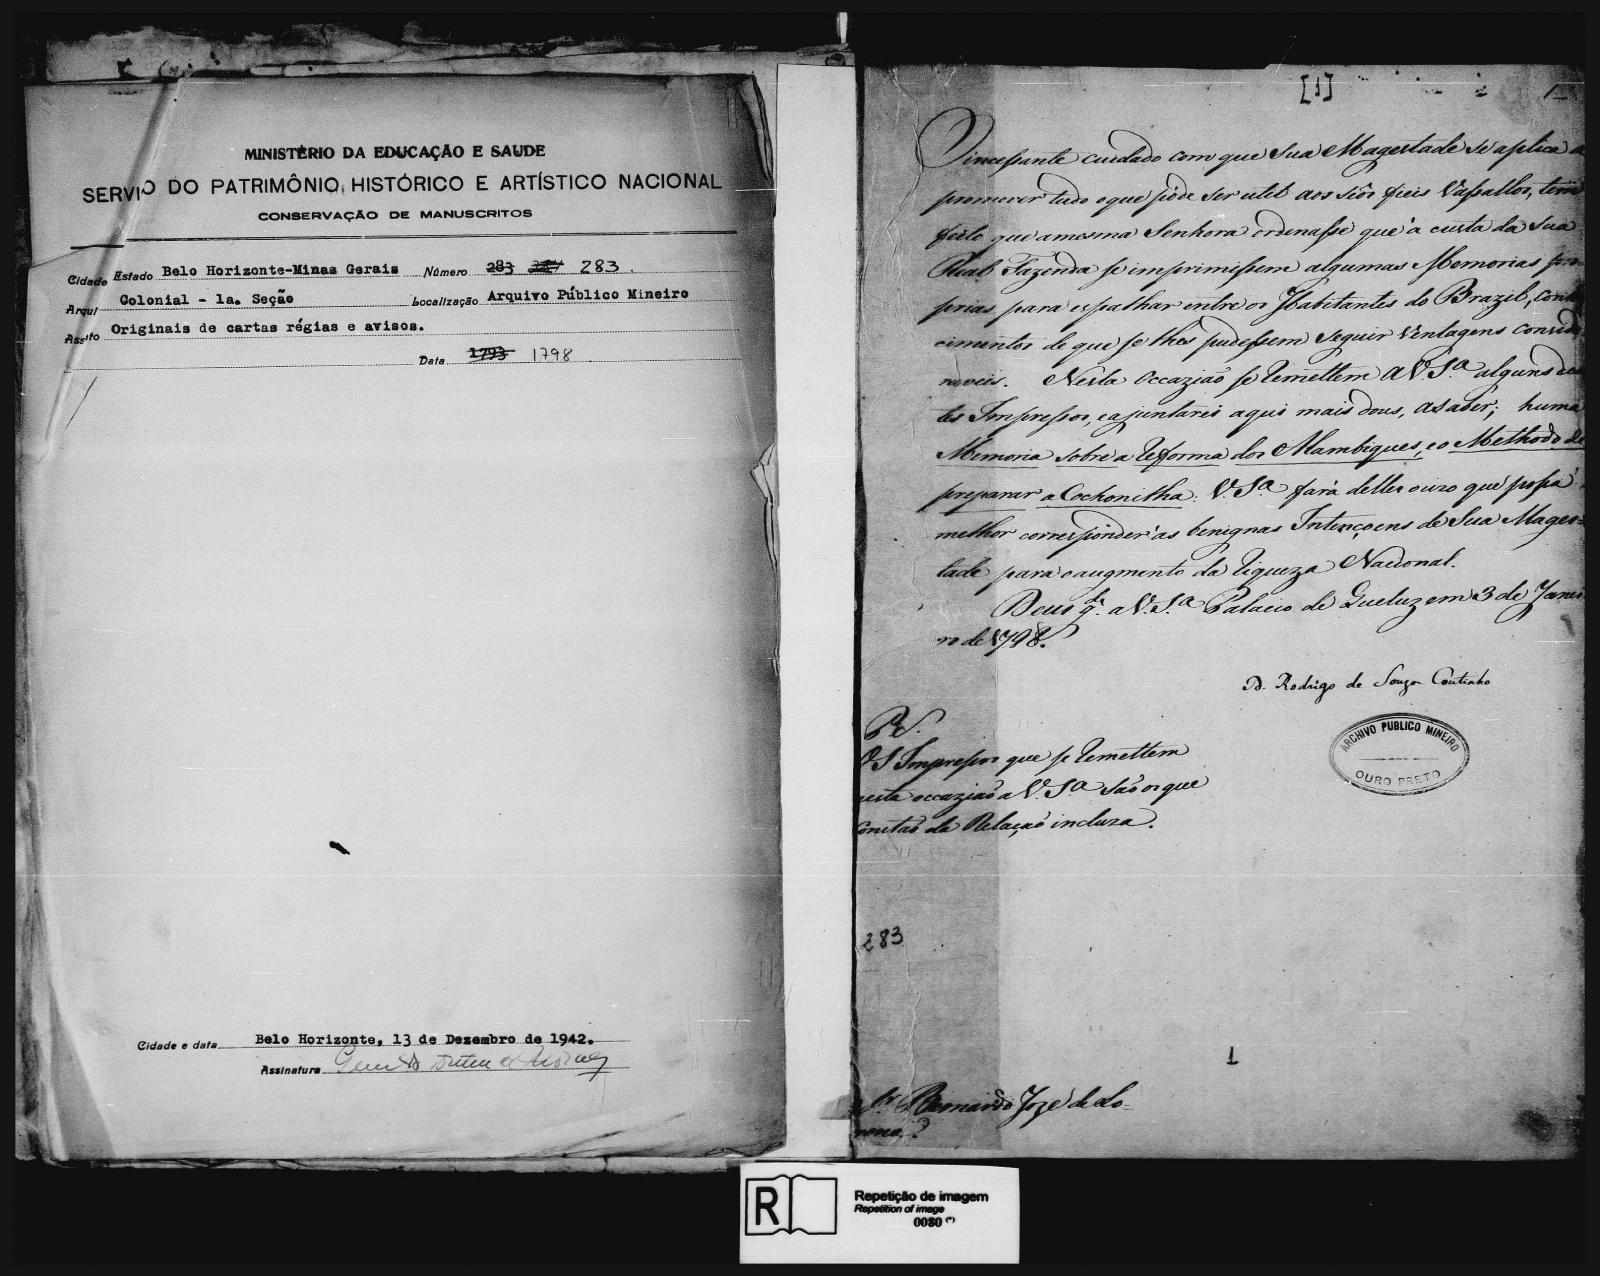 MINISTÉRIO DA EDUCAÇÃO E SAUDE
SERVIÇO DO PATRIMÔNIO HISTÓRICO E ARTÍSTICO NACIONAL
CONSERVAÇÃO DE MANUSCRITOS
Cidade Estado Belo Horizonte-Minas Gerais Número 283 283.
Arqui Colonial - 1a. Seção Localização Arquivo Público Mineiro
Assto Originais de cartas régias e avisos.
Data 1793 1798
Cidade e data Belo Horizonte, 13 de Dezembro de 1942.
Assinatura
[1]
O incessante cuidado com que Sua Magestade se aplica a
promover tudo o que póde ser util aos seos fieis Vassallos, tem
feito que a mesma Senhora ordenasse que á custa da Sua
Real Fazenda se imprimissem algumas Memorias pro
prias para espalhar entre os Habitantes do Brazil, conhe
cimentos de que se lhes pudessem seguir ventagens conside
raveis. Nesta occazião se remettem a V. S.ª alguns des
tes Impressos, e ajuntarei aqui mais dous, a saber; huma
Memoria sobre a reforma dos Alambiques, e o Methodo de
preparar a Cochonilha: V. S.ª fará delles o uzo que possa
melhor corresponder ás benignas Intençoens de Sua Mages=
tade para o augmento da riqueza Nacional.
Deos g.de a V. S.ª Palacio de Queluz em 3 de Janei
ro de 1798.
D. Rodrigo de Souza Coutinho
ARCHIVO PUBLICO MINEIRO
OURO PRETO
P.S.
Os Impressos que se remettem
nesta occazião a V. S.ª são os que
Constão da Relação incluza.
283
1
Sr. Bernardo Jozé de Lo-
rena.
R
Repetição de imagem
Repetition of image
0080 (*)